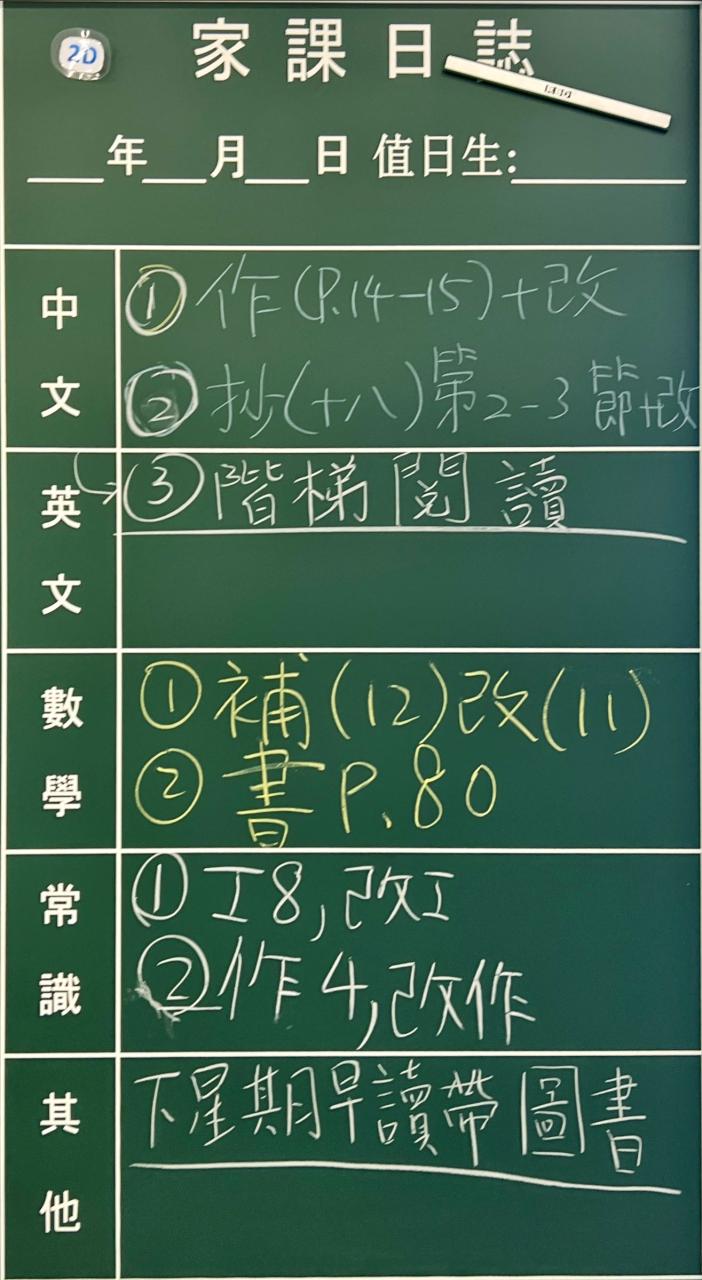 2D
家課日誌
年 月 日 值日生:
中文
① 作(P.14-15)+改
② 抄(十八)第2-3節+改
英文
③ 階梯閱讀
數學
① 補(12)改(11)
② 書P.80
常識
① 工8,改工
② 作4,改作
其他
下星期早讀帶圖書